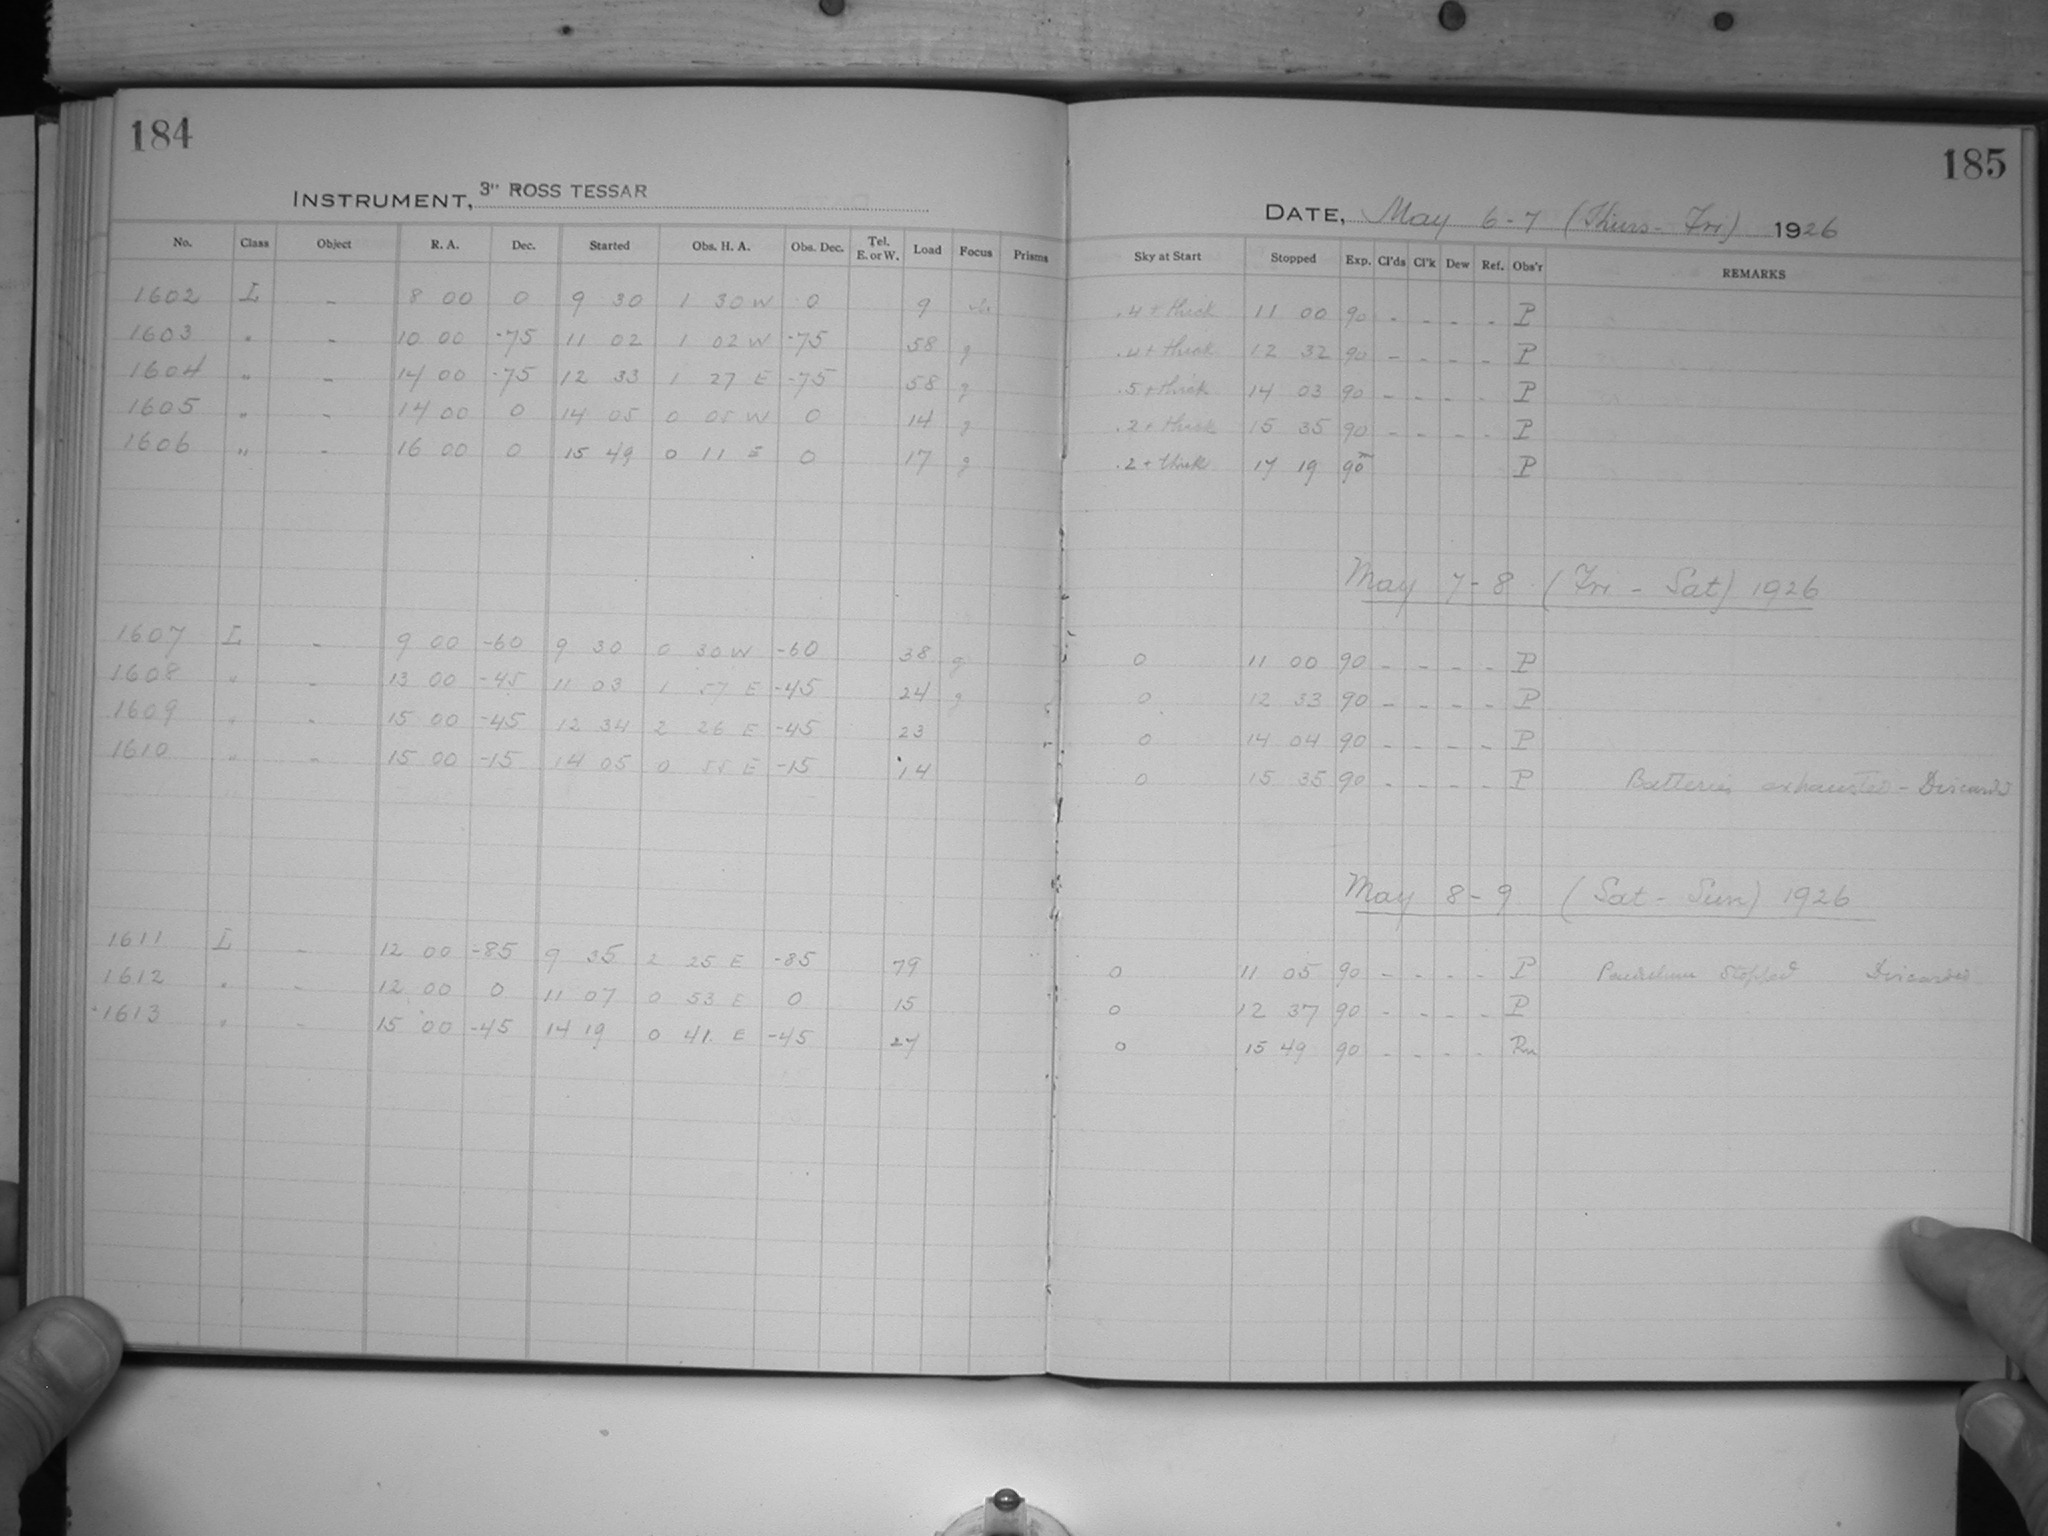 184
INSTRUMENT, 3" ROSS TESSAR
No. Class Object R. A. Dec. Started Obs. H. A. Obs. Dec. Tel. E. or W. Load Focus Prisms
1602 L - 8 00 0 9 30 1 30 W 0 9
1603 " - 10 00 -75 11 02 1 02 W -75 58 g
1604 " - 14 00 -75 12 33 1 27 E -75 58 g
1605 " - 14 00 0 14 05 0 05 W 0 14 g
1606 " - 16 00 0 15 49 0 11 E 0 17 g
1607 L - 9 00 -60 9 30 0 30 W -60 38 g
1608 " - 13 00 -45 11 03 1 57 E -45 24 g
1609 " - 15 00 -45 12 34 2 26 E -45 23
1610 " - 15 00 -15 14 05 0 55 E -15 14
1611 L - 12 00 -85 9 35 2 25 E -85 79
1612 " - 12 00 0 11 07 0 53 E 0 15
1613 " - 15 00 -45 14 19 0 41 E -45 27
185
DATE, May 6-7 (Thurs-Fri) 1926
Sky at Start Stopped Exp. Cl'ds Cl'k Dew Ref. Obs'r REMARKS
.4 + thick 11 00 90 - - - - P
.4 + thick 12 32 90 - - - - P
.5 + thick 14 03 90 - - - - P
.2 + thick 15 35 90 - - - - P
.2 + thick 17 19 90m P
May 7-8 (Fri - Sat) 1926
0 11 00 90 - - - - P
0 12 33 90 - - - - P
0 14 04 90 - - - - P
0 15 35 90 - - - - P Batteries exhausted - Discarded
May 8-9 (Sat - Sun) 1926
0 11 05 90 - - - - P Pendulum stopped Discarded
0 12 37 90 - - - - P
0 15 49 90 - - - - Rm